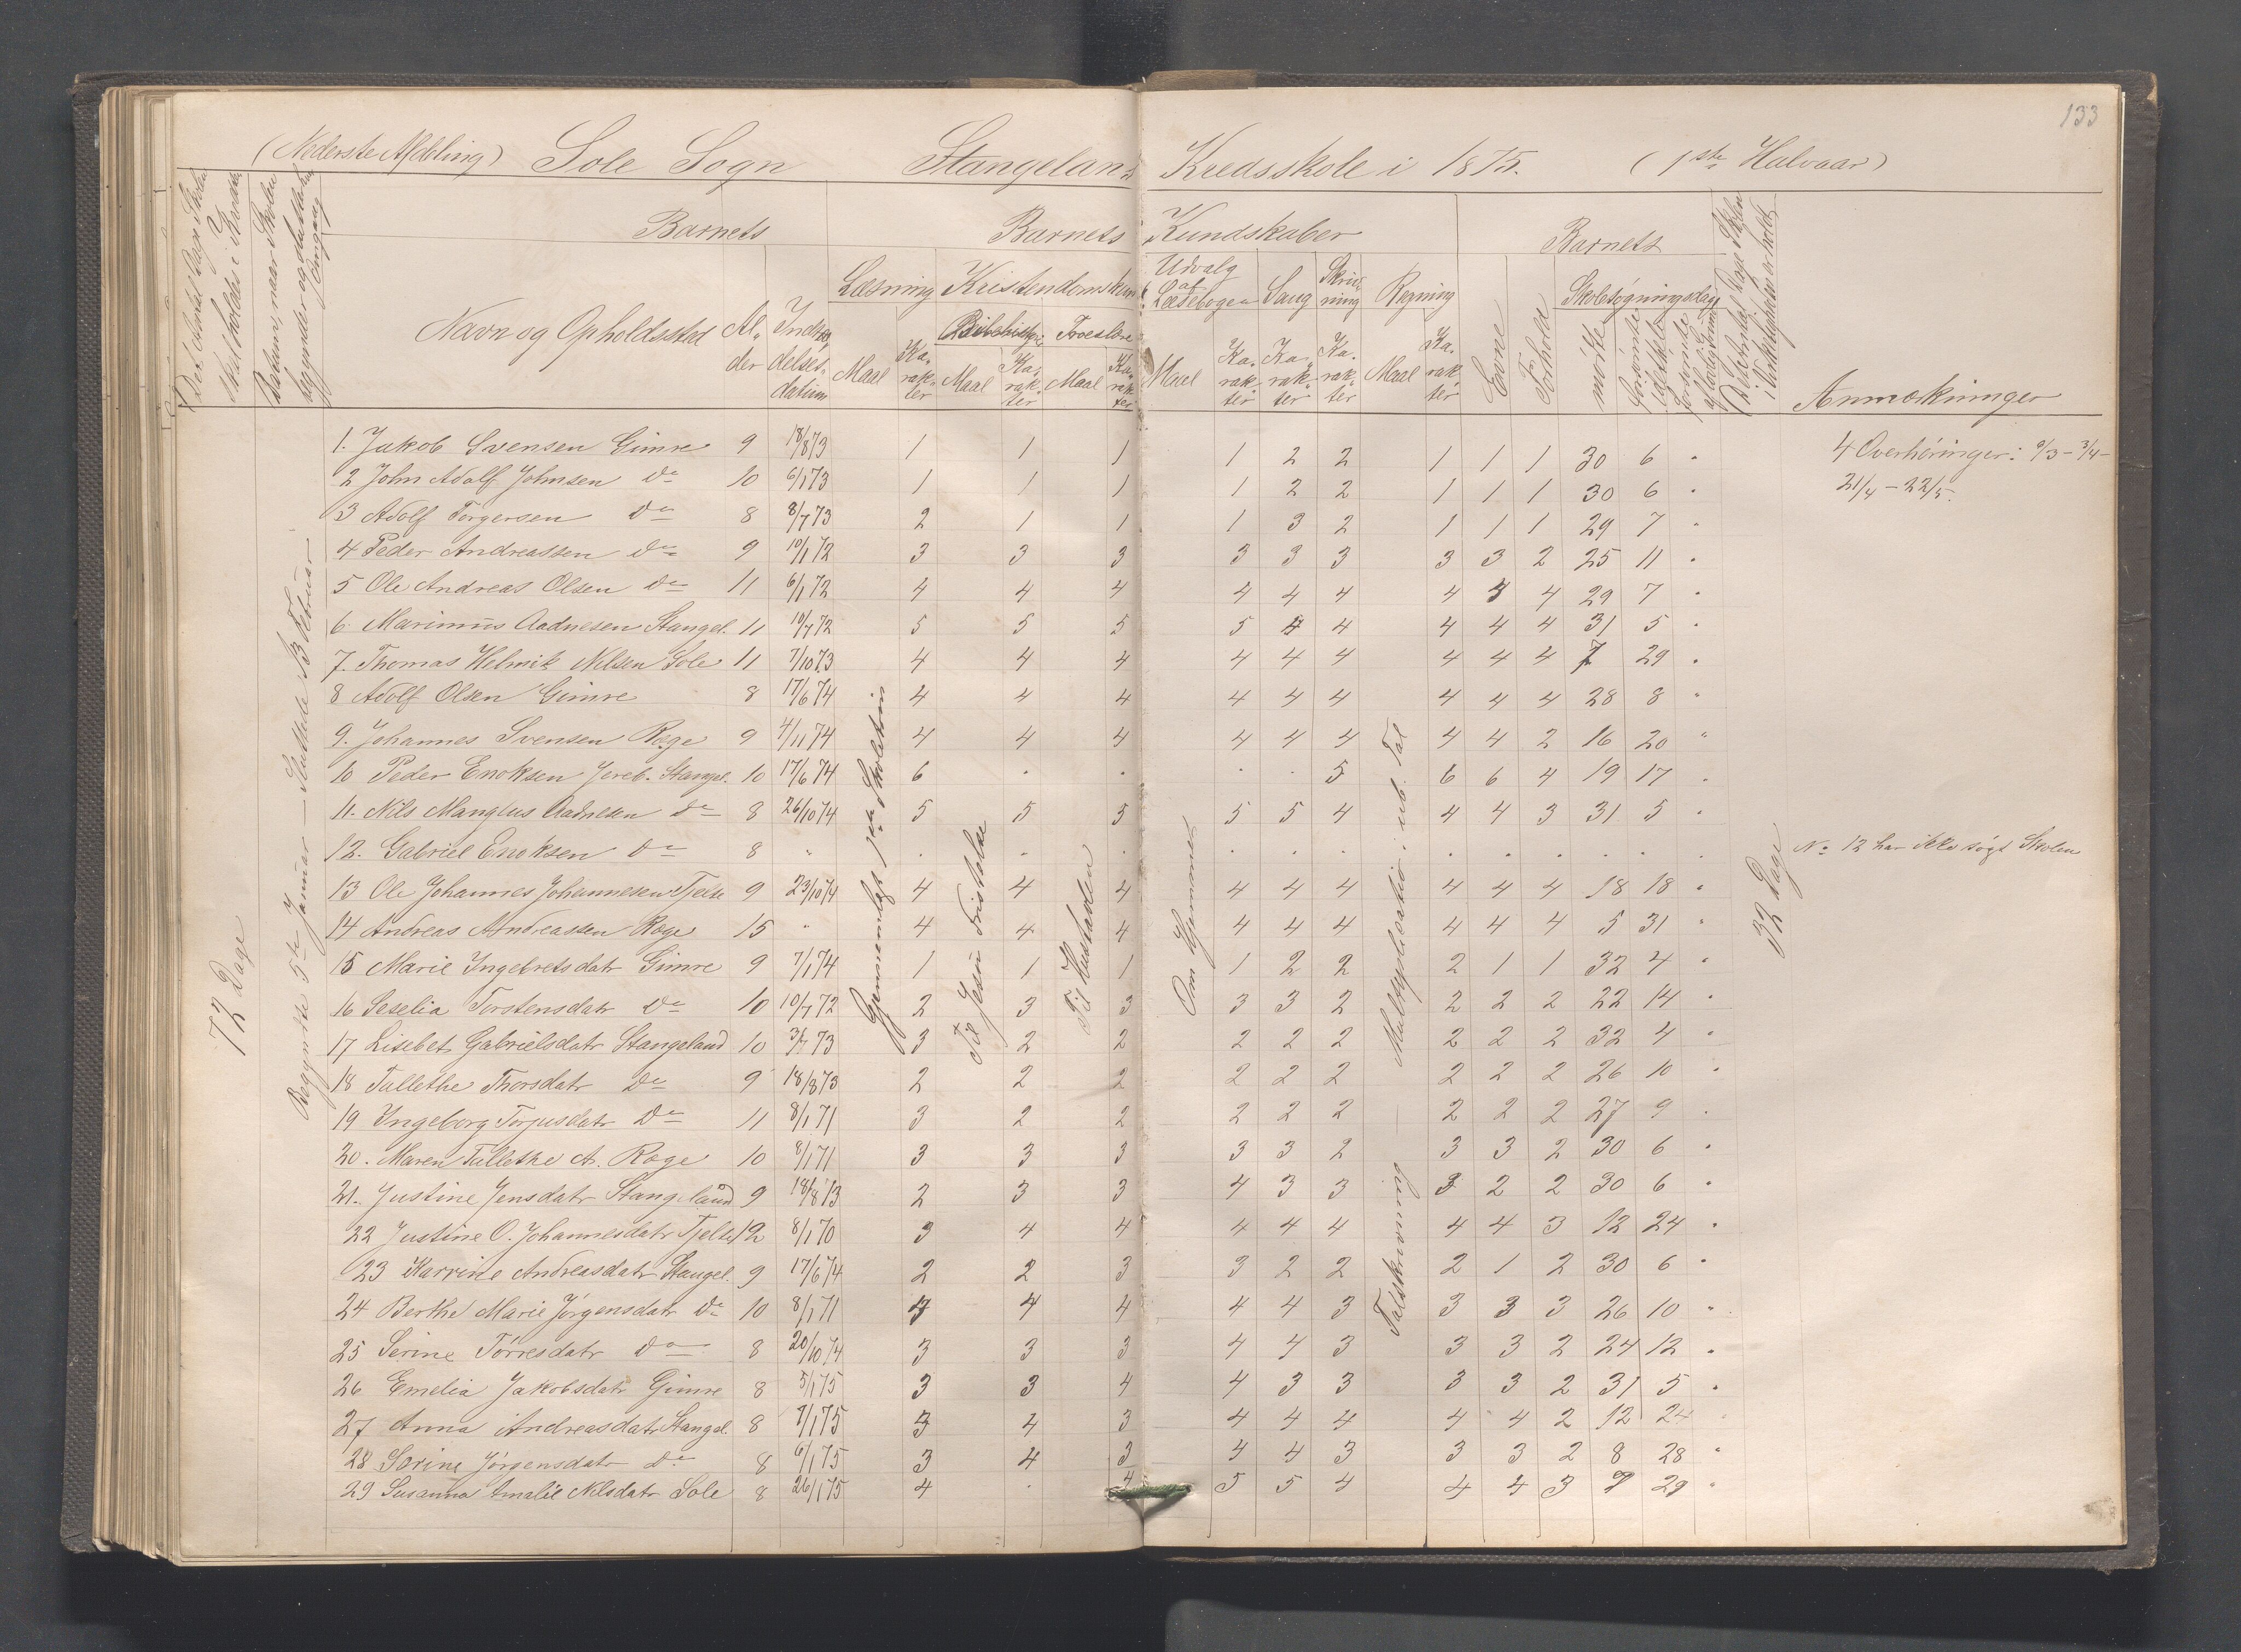 133
(Nederste Afdeling) Sole Sogn Stangeland Kredsskole i 1875. (1ste Halvaar)
Det Antal Dage Skolen skal holdes i Kredsen
Datum, naar Skolen begynder og slutter hver Omgang
Barnets Barnets Kundskaber Barnets
Navn og Opholdssted Alder Indtrædelsesdatum
Læsning Kristendomskun Udvalg af Læsebogen Sang Skrivning Regning Evne Forhold Skolesøgningsdage
Bibelhistorie Troeslære
Maal Karakter Maal Karakter Maal Karakter Maal Karakter Karakter Karakter Maal Karakter mødte forsømte Anmærkninger
Begyndte 5te Januar — sluttede 13 Februar
72 Dage
Gjennemlagt 1ste Skoletrin
Til Jesu Fristelse
Til Hustavlen
Om Hjemmet
Talskrivning — Multiplikation i ub. Tal
32 Dage
1. Jakob Svensen Gimre 9 18/8 73 1 1 1 1 2 2 1 1 1 30 6 " 4 Overhøringer: 9/3 - 3/4 -
2 John Adolf Johnsen do 10 6/1 73 1 1 1 1 2 2 1 1 1 30 6 " 21/4 - 22/5.
3 Adolf Torgersen do 8 8/7 73 2 1 1 1 3 2 1 1 1 29 7 "
4 Peder Andreassen do 9 10/1 72 3 3 3 3 3 3 3 3 2 25 11 "
5 Ole Andreas Olsen do 11 6/1 72 4 4 4 4 4 4 4 3 4 29 7 "
6. Marinus Aadnesen Stangel. 11 10/7 72 5 5 5 5 4 4 4 4 4 31 5 "
7. Thomas Helmik Nilsen Sole 11 7/10 73 4 4 4 4 4 4 4 4 4 7 29 "
8 Adolf Olsen Gimre 8 17/6 74 4 4 4 4 4 4 4 4 4 28 8 "
9. Johannes Svensen Røge 9 4/11 74 4 4 4 4 4 4 4 4 2 16 20 "
10 Peder Enoksen Jereb. Stangel. 10 17/6 74 6 . . . . 5 6 6 4 19 17 "
11. Nils Manglus Aadnesen do 8 26/10 74 5 5 5 5 5 4 4 4 3 31 5 "
12. Gabriel Enoksen do 8 " . . . . . . . . . . . . No 12 har ikke søgt Skolen
13 Ole Johannes Johannesen Tjelse 9 23/10 74 4 4 4 4 4 4 4 4 4 18 18 "
14 Andreas Andreassen Røge 15 " 4 4 4 4 4 4 4 4 4 5 31 "
15 Marie Ingebretsdatr Gimre 9 7/1 74 1 1 1 1 2 2 2 1 1 32 4 "
16 Seselia Torstensdatr do 10 10/7 72 2 3 3 3 3 2 2 2 2 22 14 "
17 Lisebet Gabrielsdatr Stangeland 10 3/7 73 3 2 2 2 2 2 2 2 2 32 4 "
18 Tallethe Thorsdatr do 9 18/8 73 2 2 2 2 2 2 2 2 2 26 10 "
19 Ingeborg Torjusdatr do 11 8/1 71 3 2 2 2 2 2 2 2 2 27 9 "
20. Maren Tallethe A. Røge 10 8/1 71 3 3 3 3 3 2 3 3 2 30 6 "
21. Justine Jensdatr Stangeland 9 18/8 73 2 3 3 4 3 3 3 2 2 30 6 "
22 Justine O. Johannesdatr Tjelse 12 8/1 70 3 4 4 4 4 4 4 4 3 12 24 "
23 Karrine Andreasdatr Stangel. 9 17/6 74 2 2 3 3 2 2 2 1 2 30 6 "
24 Berthe Marie Jørgensdatr do 10 8/1 71 4 4 4 4 4 3 3 3 3 26 10 "
25 Serine Tørresdatr do 8 20/10 74 3 3 3 4 4 3 3 3 2 24 12 "
26 Emelia Jakobsdatr Gimre 8 5/1 75 3 3 4 4 3 3 3 3 2 31 5 "
27 Anna Andreasdatr Stangel. 8 8/1 75 3 4 3 4 4 4 4 4 2 12 24 "
28 Sørine Jørgensdatr do 8 6/1 75 3 4 3 4 4 3 3 3 2 8 28 "
29 Susanna Amalie Nilsdatr Sole 8 26/1 75 4 . 4 5 5 4 4 4 3 7 29 "